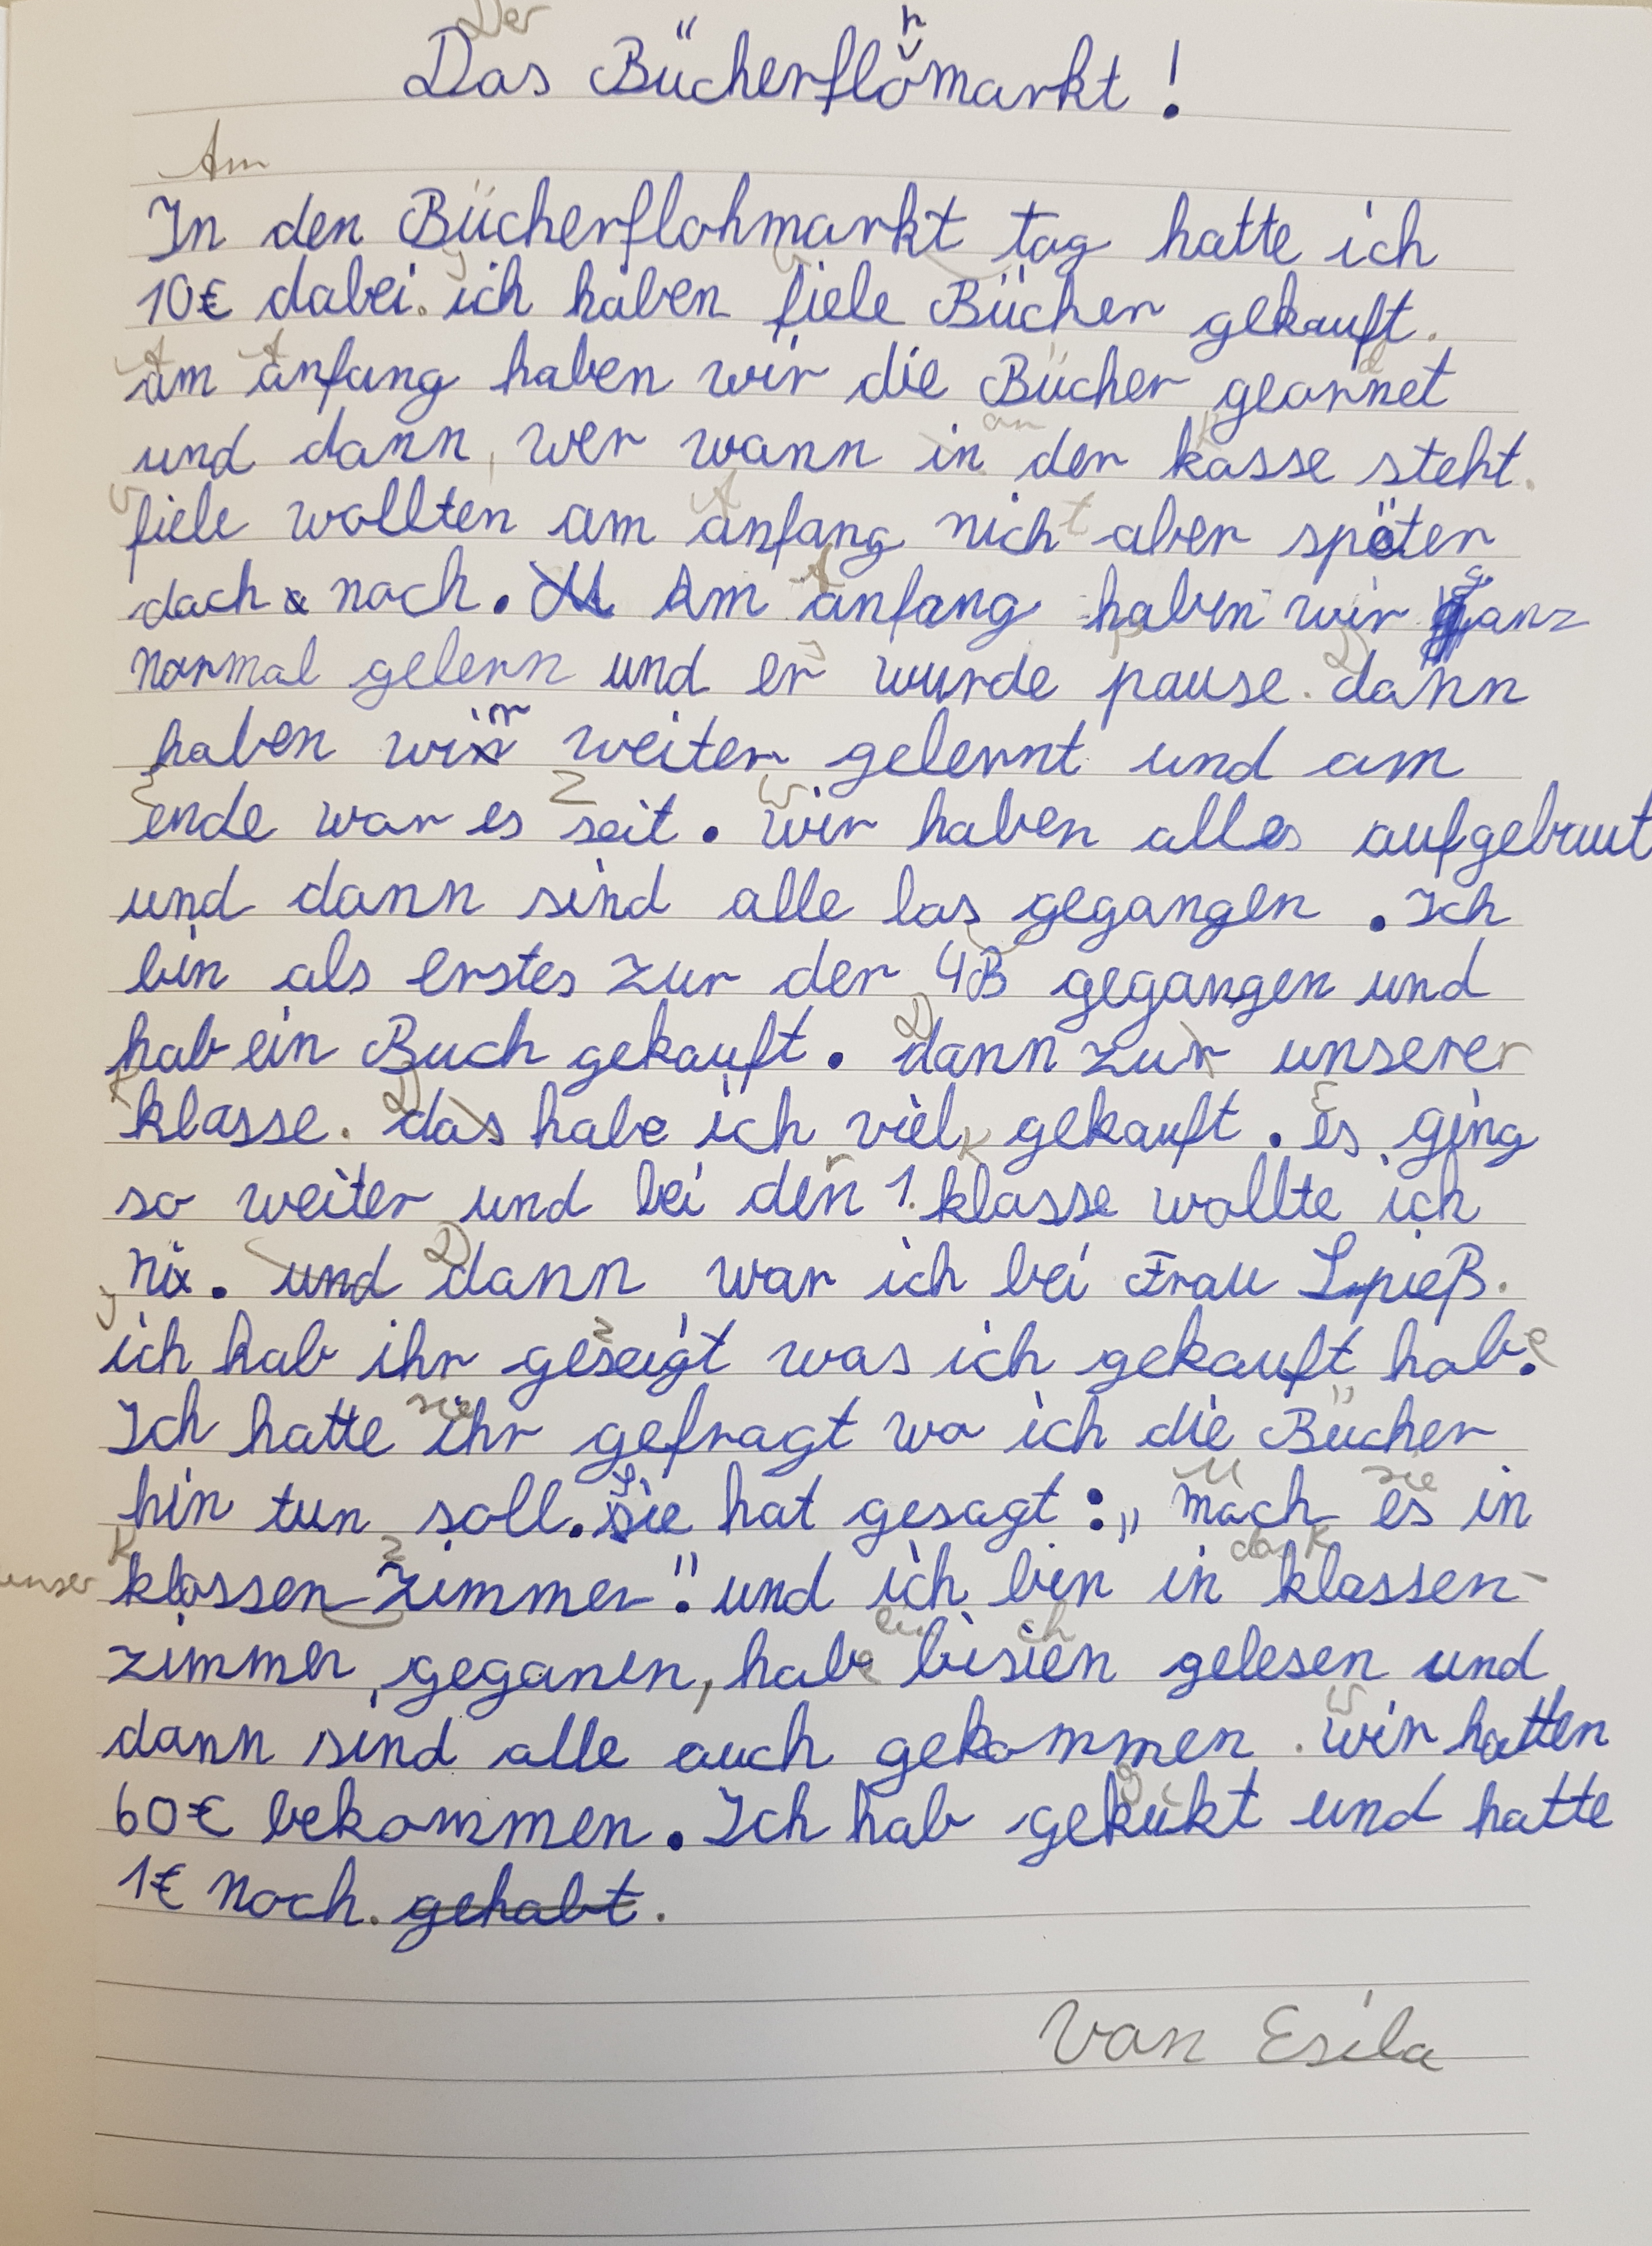 Der
Das Bücherflohmarkt!
Am
In den Bücherflohmarkt tag hatte ich
10€ dabei. ich haben fiele Bücher gekauft.
am anfang haben wir die Bücher geornet
und dann, wer wann in der kasse steht.
fiele wollten am anfang nicht aber später
doch noch. Am anfang haben wir ganz
normal gelern und er wurde pause. dann
haben wir weiter gelernt und am
ende war es seit. wir haben alles aufgebaut
und dann sind alle los gegangen. Ich
bin als erstes zur der 4B gegangen und
hab ein Buch gekauft. dann zur unserer
klasse. das habe ich viel gekauft. es ging
so weiter und bei den 1. klasse wollte ich
nix. und dann war ich bei Frau Spieß.
ich hab ihr geseigt was ich gekauft habe.
Ich hatte ihr gefragt wo ich die Bücher
hin tun soll. Sie hat gesagt: „mach es in
unser klassen zimmer". und ich bin in klassen-
zimmer, geganen, habe bisien gelesen und
dann sind alle auch gekommen. wir hatten
60€ bekommen. Ich hab gekukt und hatte
1€ noch. gehabt.
Von Esila